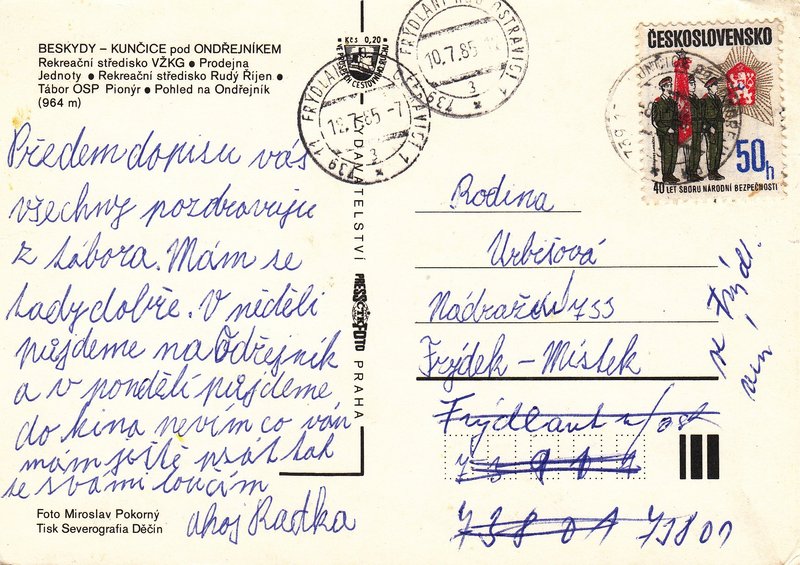 BESKYDY – KUNČICE pod ONDŘEJNÍKEM
Rekreační středisko VŽKG • Prodejna
Jednoty • Rekreační středisko Rudý Říjen •
Tábor OSP Pionýr • Pohled na Ondřejník
(964 m)
Předem dopisu vás
všechny pozdravuju
z tábora. Mám se
tady dobře. V neděli
půjdeme na Odřejník
a v pondělí půjdeme
do kina nevím co vám
mám ještě psát tak
se s vámi loučím
ahoj Radka
Foto Miroslav Pokorný
Tisk Severografia Děčín
Kčs 0,20
VYDAVATELSTVÍ PRESSFOTO PRAHA
ČTK
FRÝDLANT NAD OSTRAVICÍ 1
10.7.85
3
739 11
FRÝDLANT NAD OSTRAVICÍ 1
18.7.85-7
3
739 11
ČESKOSLOVENSKO
50h
40 LET SBORU NÁRODNÍ BEZPEČNOSTI
Rodina
Urbišová
Nádražní 733
Frýdek – Místek
Frýdlant n/Ost
73801 73801
ve Frýdl.
není